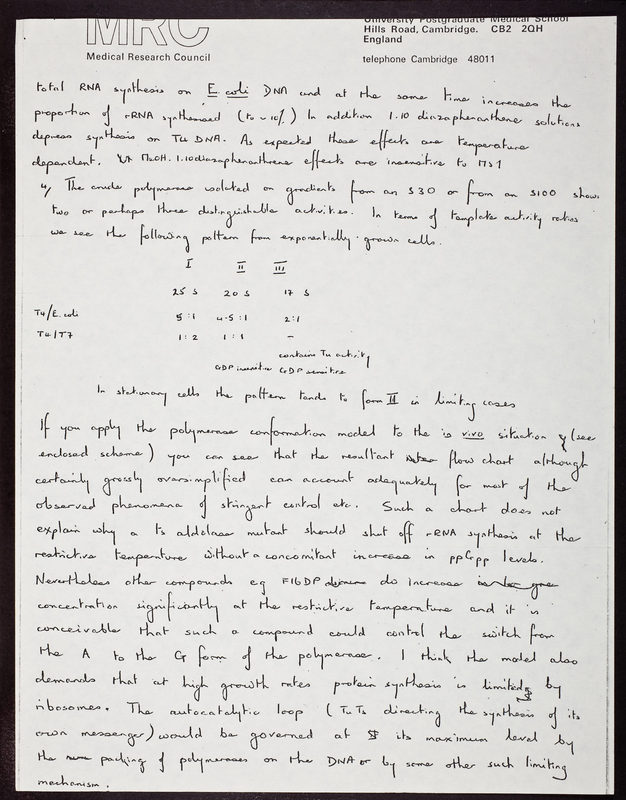 MRC
Medical Research Council
University Postgraduate Medical School
Hills Road, Cambridge. CB2 2QH
England
telephone Cambridge 48011
total RNA synthesis on E. coli DNA and at the same time increases the
proportion of rRNA synthesised (to ~ 10%) In addition 1.10 diazaphenanthene solutions
depress synthesis on T4 DNA. As expected these effects are temperature
dependent. MeOH. 1.10 diazaphenanthrene effects are insensitive to MS1
4, The crude polymerase isolated on gradients from an S30 or from an S100 shows
two or perhaps three distinguishable activities. In terms of template activity ratios
we see the following pattern from exponentially grown cells.
I II III
25 S 20 S 17 S
T4/E. coli 5:1 4-5:1 2:1
T4/T7 1:2 1:1 -
contains Tu activity
GDP insensitive GDP sensitive
In stationary cells the pattern tends to form II in limiting cases
If you apply the polymerase conformation model to the is vivo situation (see
enclosed scheme) you can see that the resultant flow chart although
certainly grossly oversimplified can account adequately for most of the
observed phenomena of stringent control etc. Such a chart does not
explain why a ts aldolase mutant should shut off rRNA synthesis at the
restrictive temperature without a concomitant increase in ppGpp levels.
Nevertheless other compounds eg F16DP do increase
concentration significantly at the restrictive temperature and it is
conceivable that such a compound could control the switch from
the A to the G form of the polymerase. I think the model also
demands that at high growth rates protein synthesis is limited by
ribosomes. The autocatalytic loop (TuTs directing the synthesis of its
own messenger) would be governed at its maximum level by
the packing of polymerases on the DNA or by some other such limiting
mechanism.